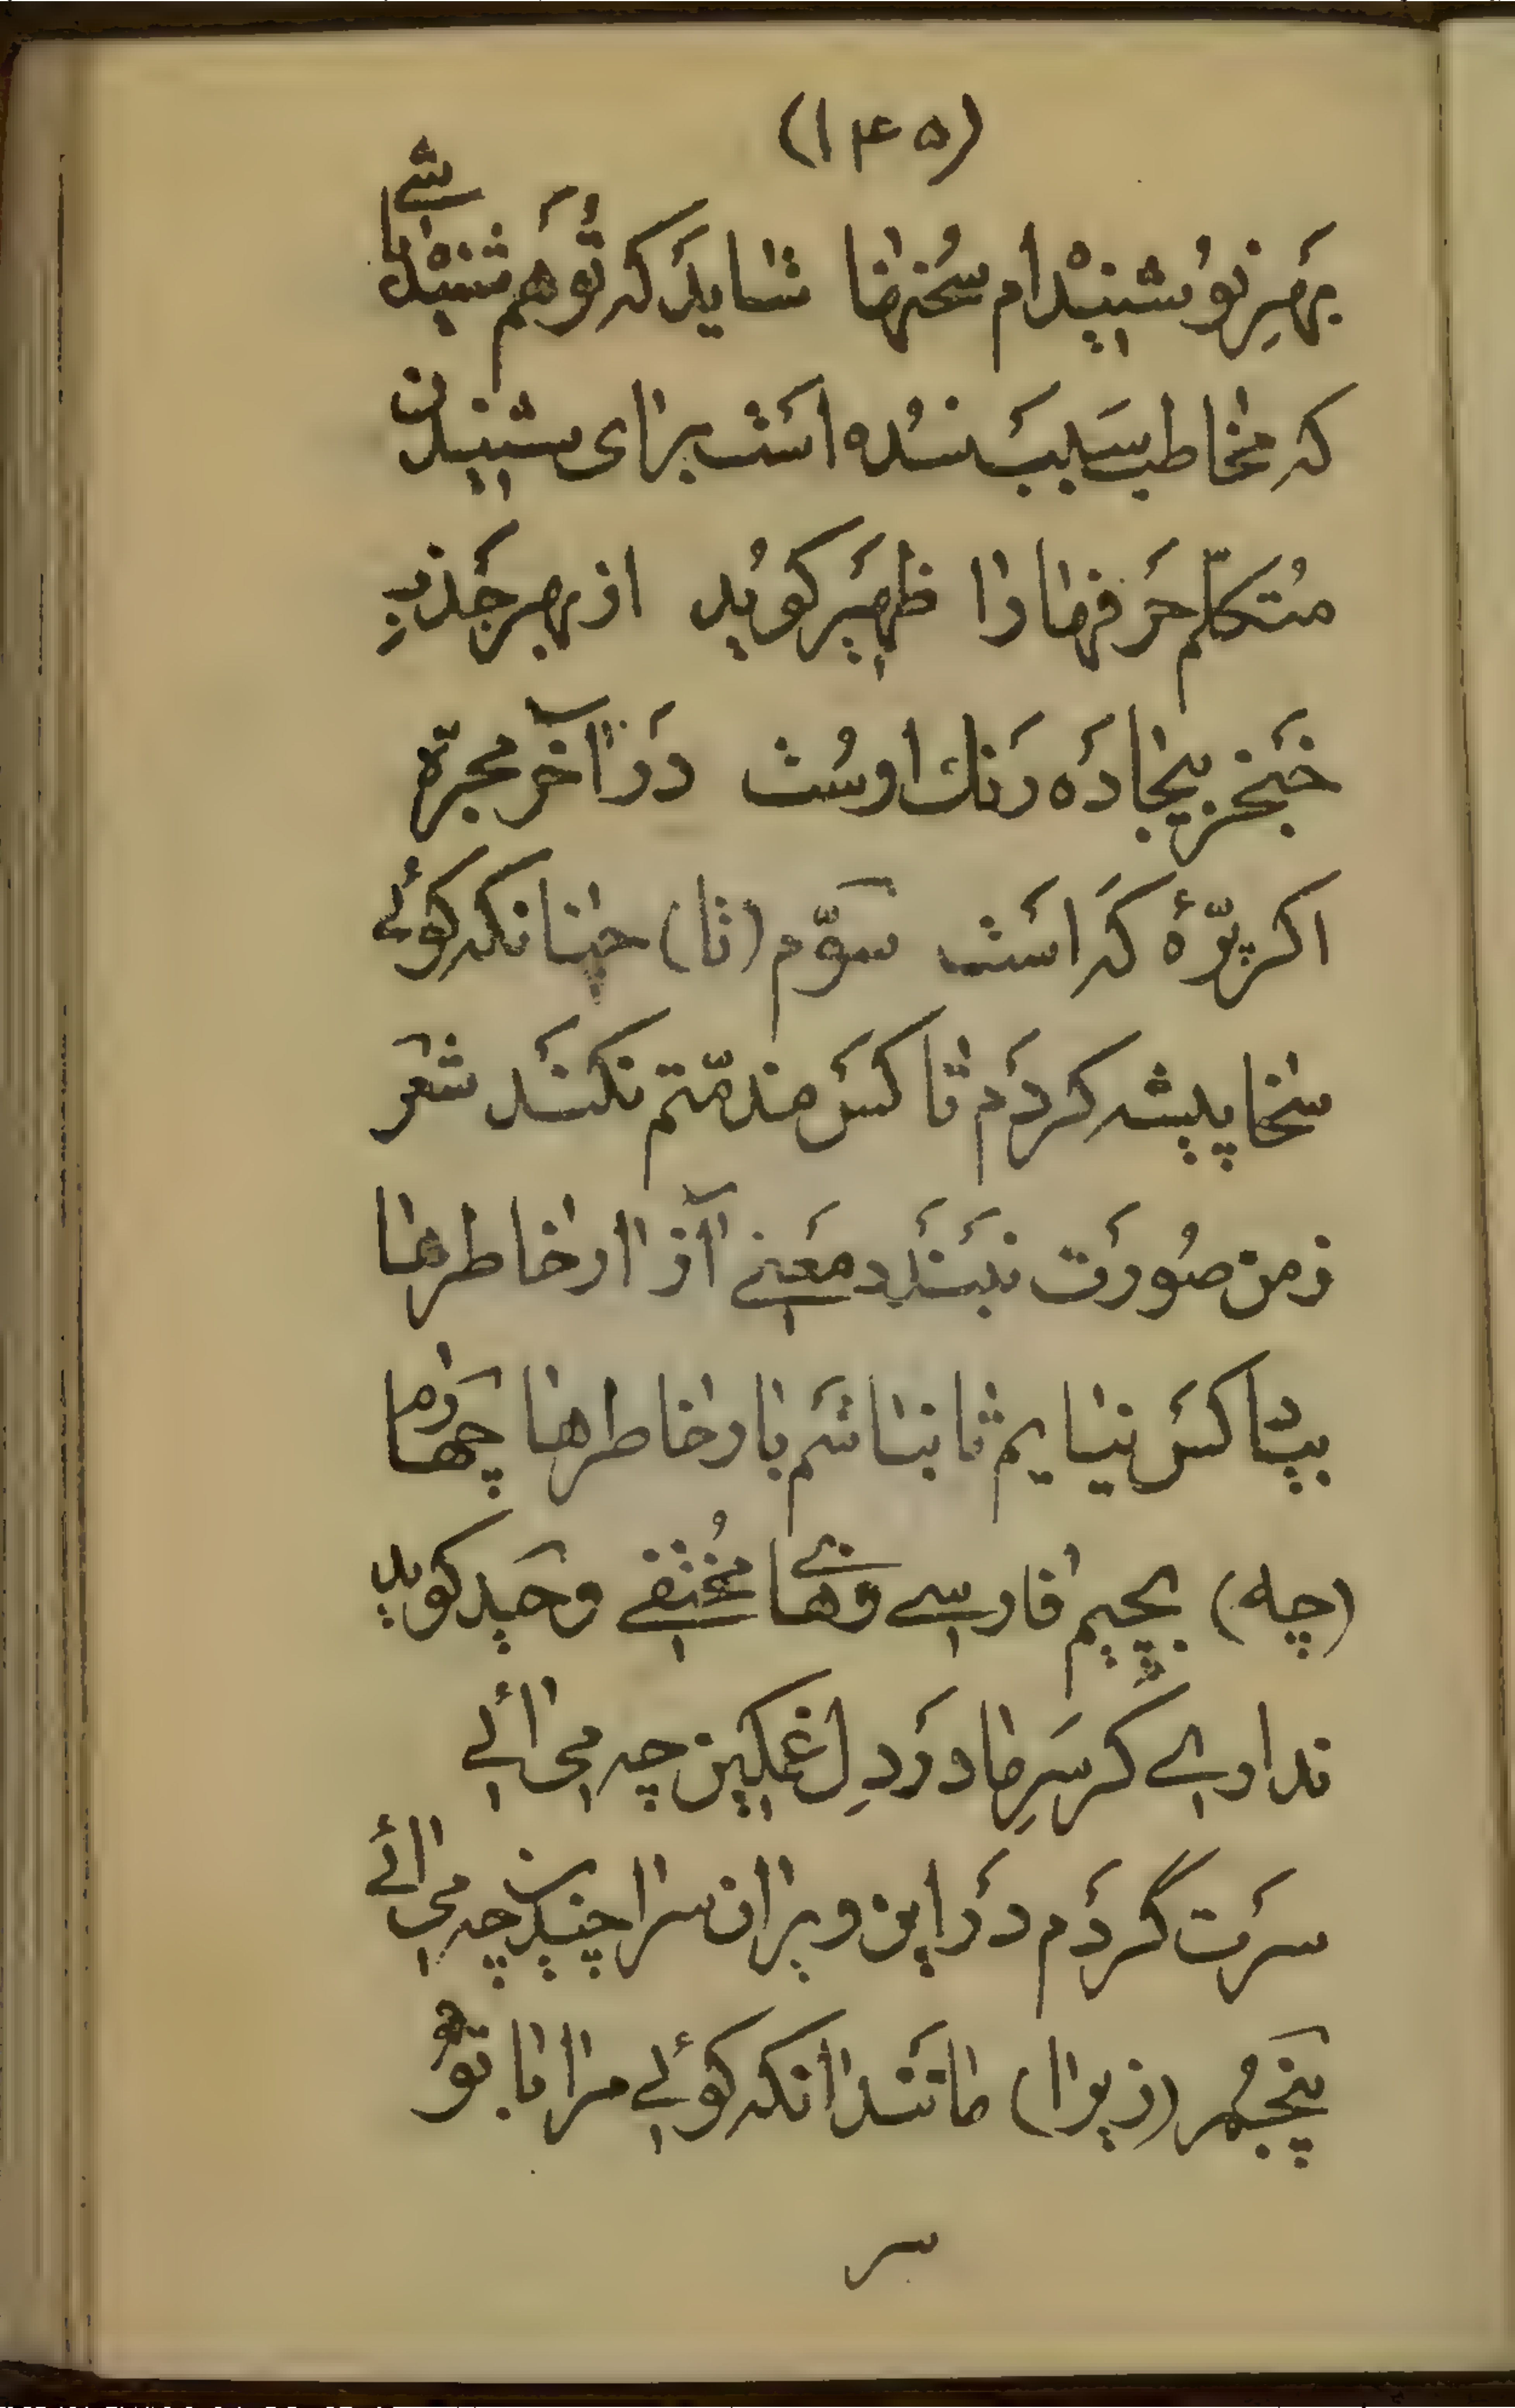 (۱۴۵)
بَهرِ تو شنیدْه‌ام سُخنها شاید که تُو هَم شنیدْه باشے
که مخاطب سَبب شُده اسَت برای شنیدن
مُتکلّم حَرفها را ظهیَر کوُید از بهرِ جَذبِ
خنجَرِ بیجادَه رَنك اوسُت دَر آخرِ مجرّه
اکر پرّهٔ کَه اسَت سوّم (تا) چنانکه کوئے
سخا پیشه کردَم تا کسَ مذمّتم نکنَد شعر
ز من صُورَت نبَندَد معَنے آزار خاطرها
بپا کسَ نیایم تا نباشَم بار خاطرها چهارم
(چه) بچیم فارسے وهاے مُختفے وحَید کوید
ندارے کر سَرِ ما در دِل غمکین چه می آئے
سرَت گردَم دَر این ویران سرا چندین چه می آئے
پنجُم (زیرا) مانَند انکه کوئے مرا با تُو
سر